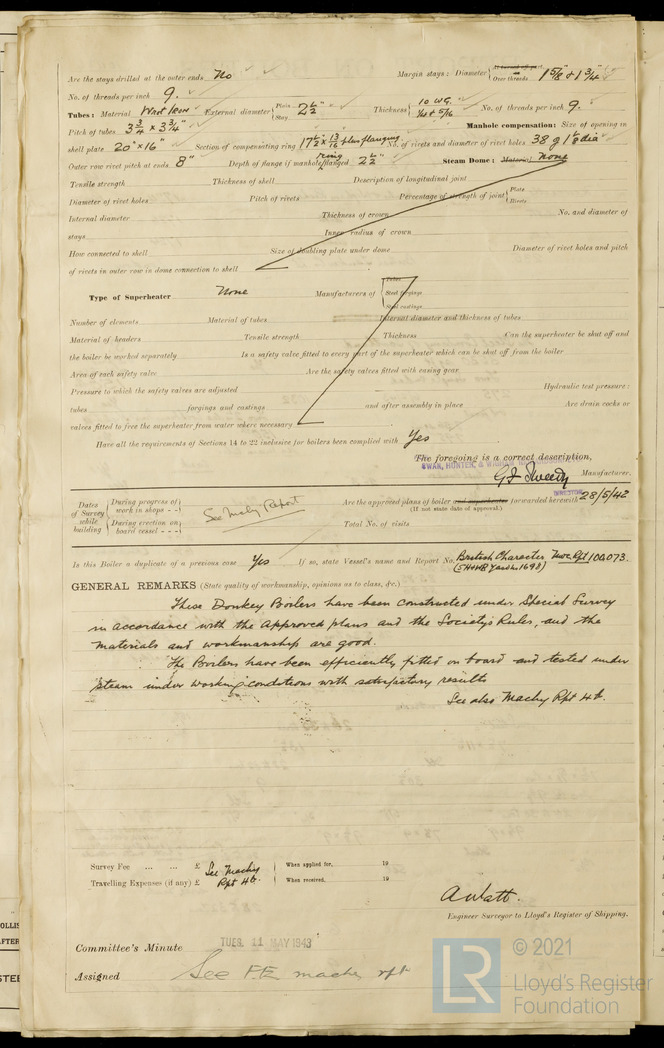 Are the stays drilled at the outer ends No Margin stays: Diameter { At turned off part, or Over threads 1 5/8" & 1 3/4"
No. of threads per inch 9.
Tubes: Material Wrot Iron External diameter { Plain Stay 2 1/2" Thickness { 10 WG. 1/4 & 5/16 No. of threads per inch 9.
Pitch of tubes 3 3/4" x 3 3/4" Manhole compensation: Size of opening in
shell plate 20" x 16" Section of compensating ring 17 1/2" x 13/16" plus flanging No. of rivets and diameter of rivet holes 38 @ 1 1/8 dia
Outer row rivet pitch at ends 8" Depth of flange if manhole ring flanged 2 1/2" Steam Dome: Material none
Tensile strength Thickness of shell Description of longitudinal joint
Diameter of rivet holes Pitch of rivets Percentage of strength of joint { Plate Rivets
Internal diameter Thickness of crown No. and diameter of
stays Inner radius of crown
How connected to shell Size of doubling plate under dome Diameter of rivet holes and pitch
of rivets in outer row in dome connection to shell
Type of Superheater None Manufacturers of { Tubes Steel forgings Steel castings
Number of elements Material of tubes Internal diameter and thickness of tubes
Material of headers Tensile strength Thickness Can the superheater be shut off and
the boiler be worked separately Is a safety valve fitted to every part of the superheater which can be shut off from the boiler
Area of each safety valve Are the safety valves fitted with easing gear
Pressure to which the safety valves are adjusted Hydraulic test pressure:
tubes forgings and castings and after assembly in place Are drain cocks or
valves fitted to free the superheater from water where necessary
Have all the requirements of Sections 14 to 22 inclusive for boilers been complied with Yes
The foregoing is a correct description,
SWAN, HUNTER, & WIGHAM
G F Tweedy Manufacturer.
DIRECTOR
Dates of Survey while building { During progress of work in shops - - During erection on board vessel - - - } See Machy Report
Are the approved plans of boiler and superheater forwarded herewith 28/5/42
(If not state date of approval.)
Total No. of visits
Is this Boiler a duplicate of a previous case Yes If so, state Vessel's name and Report No. British Character Nwc Rpt 100,073.
(SH&WR Yard No 1698)
GENERAL REMARKS (State quality of workmanship, opinions as to class, &c.)
These Donkey Boilers have been constructed under Special Survey
in accordance with the approved plans and the Society's Rules, and the
materials and workmanship are good.
The Boilers have been efficiently fitted on board and tested under
steam under working conditions with satisfactory results
See also Machy Rpt 4b.
Survey Fee ... ... £ See Machy When applied for, 19
Travelling Expenses (if any) £ Rpt 4b. When received, 19
A Watt.
Engineer Surveyor to Lloyd's Register of Shipping.
Committee's Minute TUES. 11 MAY 1943
Assigned See F.E. machy rpt
LR © 2021
Lloyd's Register
Foundation